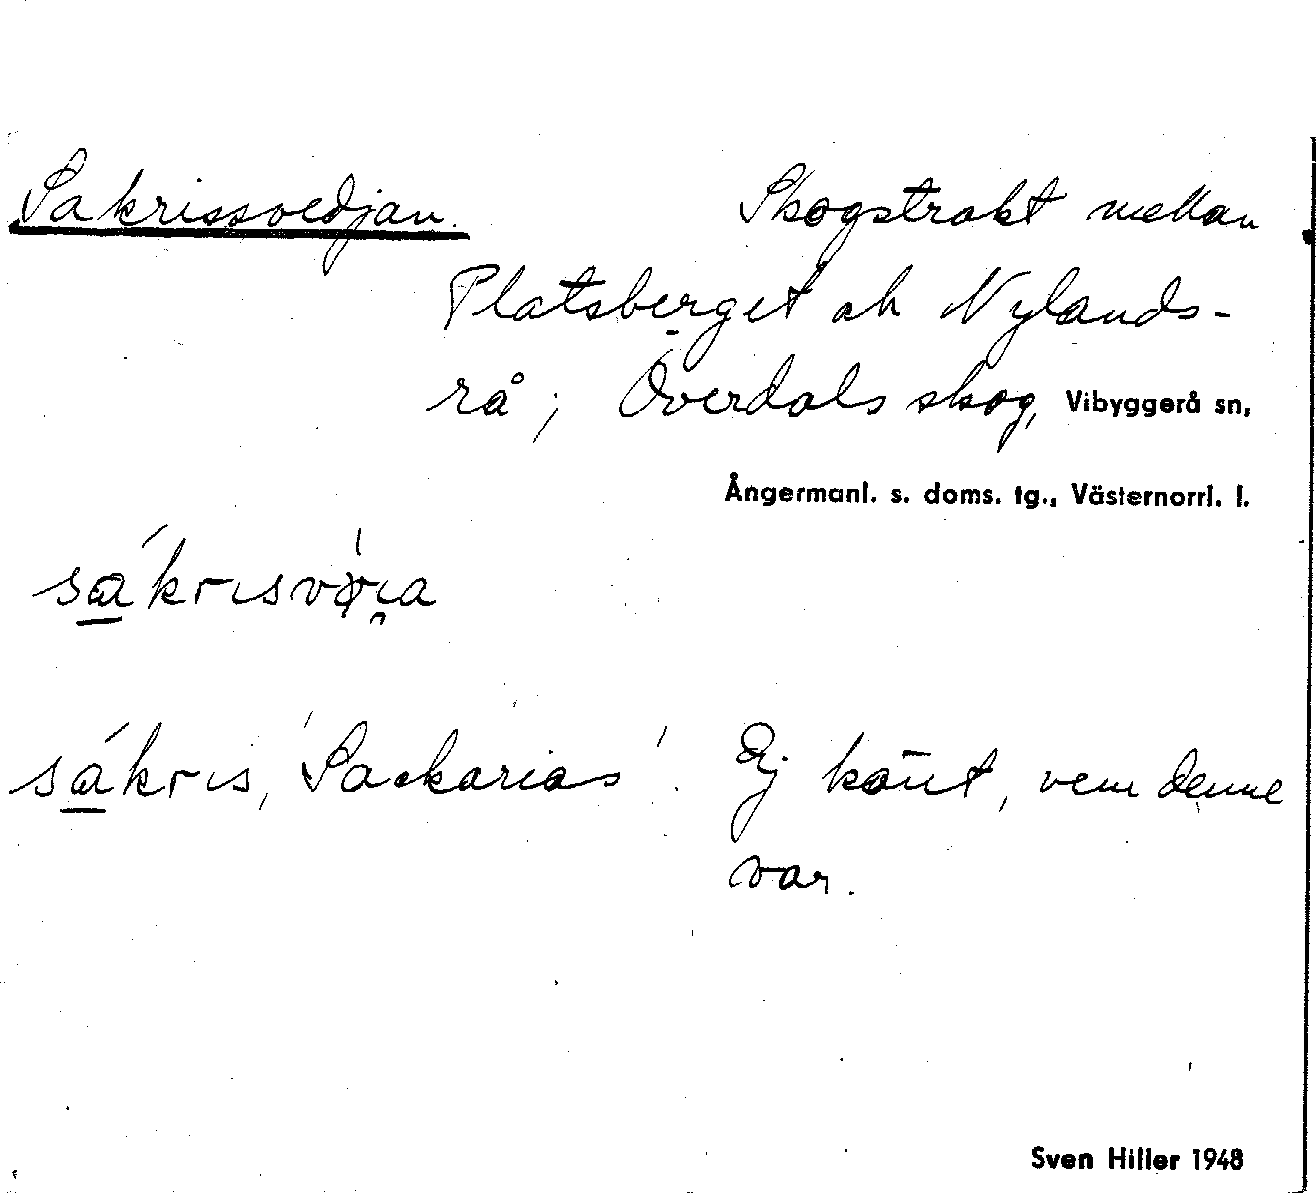 Sakrissvedjan. Skogstrakt mellan
Platsberget och Nylands-
rå; Överdals skog, Vibyggerå sn,
Ångermanl. s. doms. tg., Västernorrl. l.
sákris, 'Sackarias'. Ej känt, vem denne
var.
Sven Hiller 1948